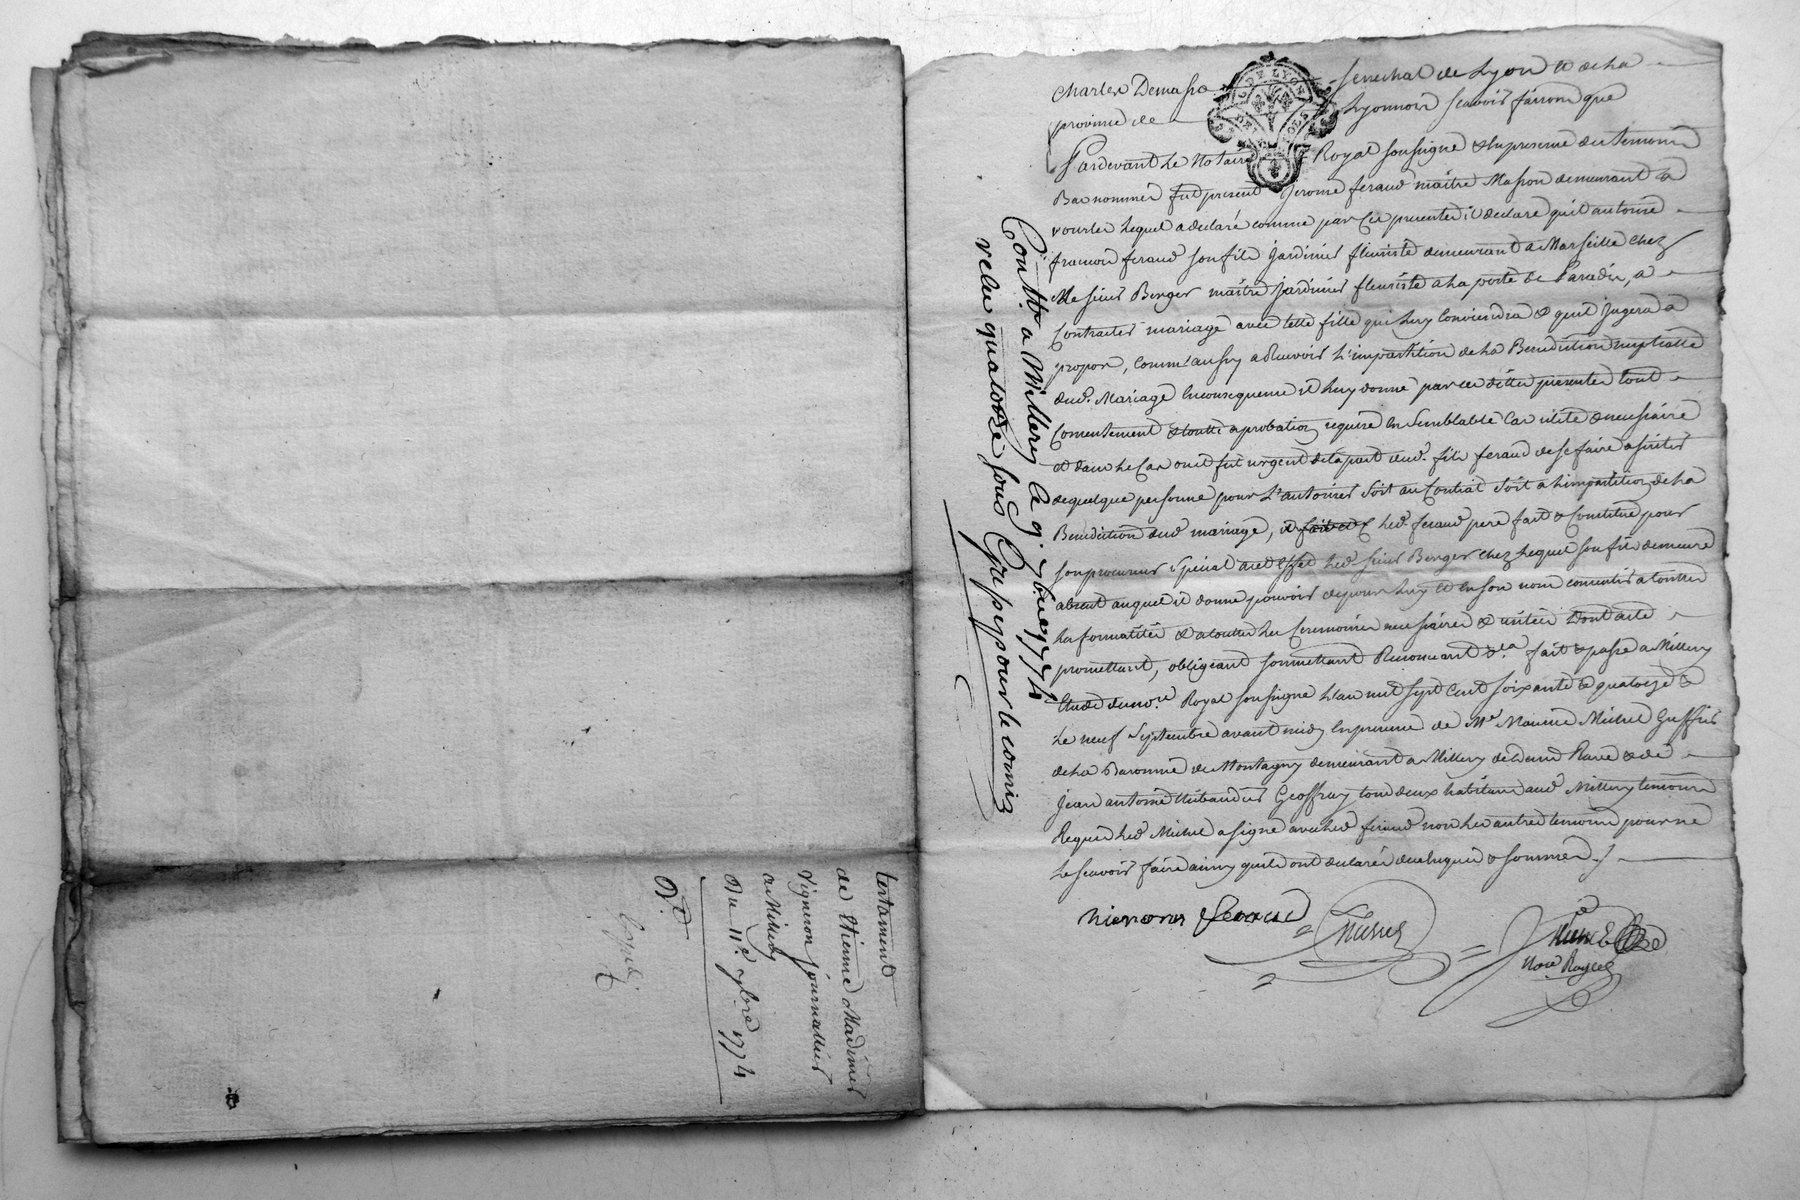 testament
de Etienne Madinier
vigneron journallier
a Millery
Du 11e. 7bre 1774
Charles Demasso senechal de Lyon et de la
province de Lyonnois scavoir faisons que
Pardevant le Notaire Royal soussigné & En presence des temoins
Bas nommés fut present Jerome feraud maître Masson demeurant a
vourles lequel a declaré comme par Ces presentes il declare qu'il autorise
francois feraud son fils Jardinier fleuriste demeurant a Marseille chez
Le sieur Berger maître Jardinier fleuriste a la porte de Paradis, a
Contracter mariage avec telle fille qui luy Conviendra & qu'il Jugera a
propos, comm'aussy a Recevoir l'impartition de la Benediction nuptialle
dud. Mariage En consequence il luy donne par ces dittes presentes tout
Consentement & toutte aprobation requise En semblable Cas utile & necessaire
et dans le Cas ou il fut urgent de la part dud. fils feraud de se faire assister
de quelque personne pour l'autoriser soit au Contrat soit a l'impartition de la
Benediction dud mariage, led. feraud pere fait & Constitue pour
son procureur special led sieur Berger chez lequel son fils demeure
absent auquel il donne pouvoir de pour luy et En son nom consentir a touttes
les formalités & a touttes les Ceremonies necessaires & utiles Dont acte
promettant, obligeant soumettant Renoncant &a. fait & passé a Millery
Etude du nore. Royal soussigné L'an mil sept Cent soixante & quatorze &
Le neuf Septembre avant midy En presence de Me Maurice Michel Greffier
de la Baronnie de Montagny demeurant a Millery & de
Jean antoine Geoffray tous deux habitans aud. Millery temoins
Requis led Michel a signé avec led feraud non les autres temoins pour ne
Le scavoir faire ainsy qu'ils ont declaré de ce Enquis & sommés ./.
hieronimes feraud
Michel
nore Royal
Conttlé. a Millery le 9. 7bre 1774
reçu quatorze sous